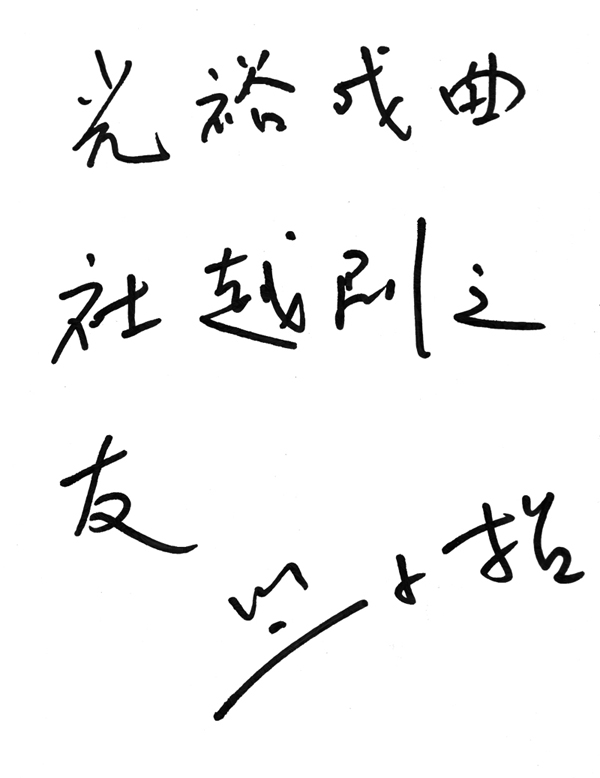 光裕戏曲
社越剧之
友